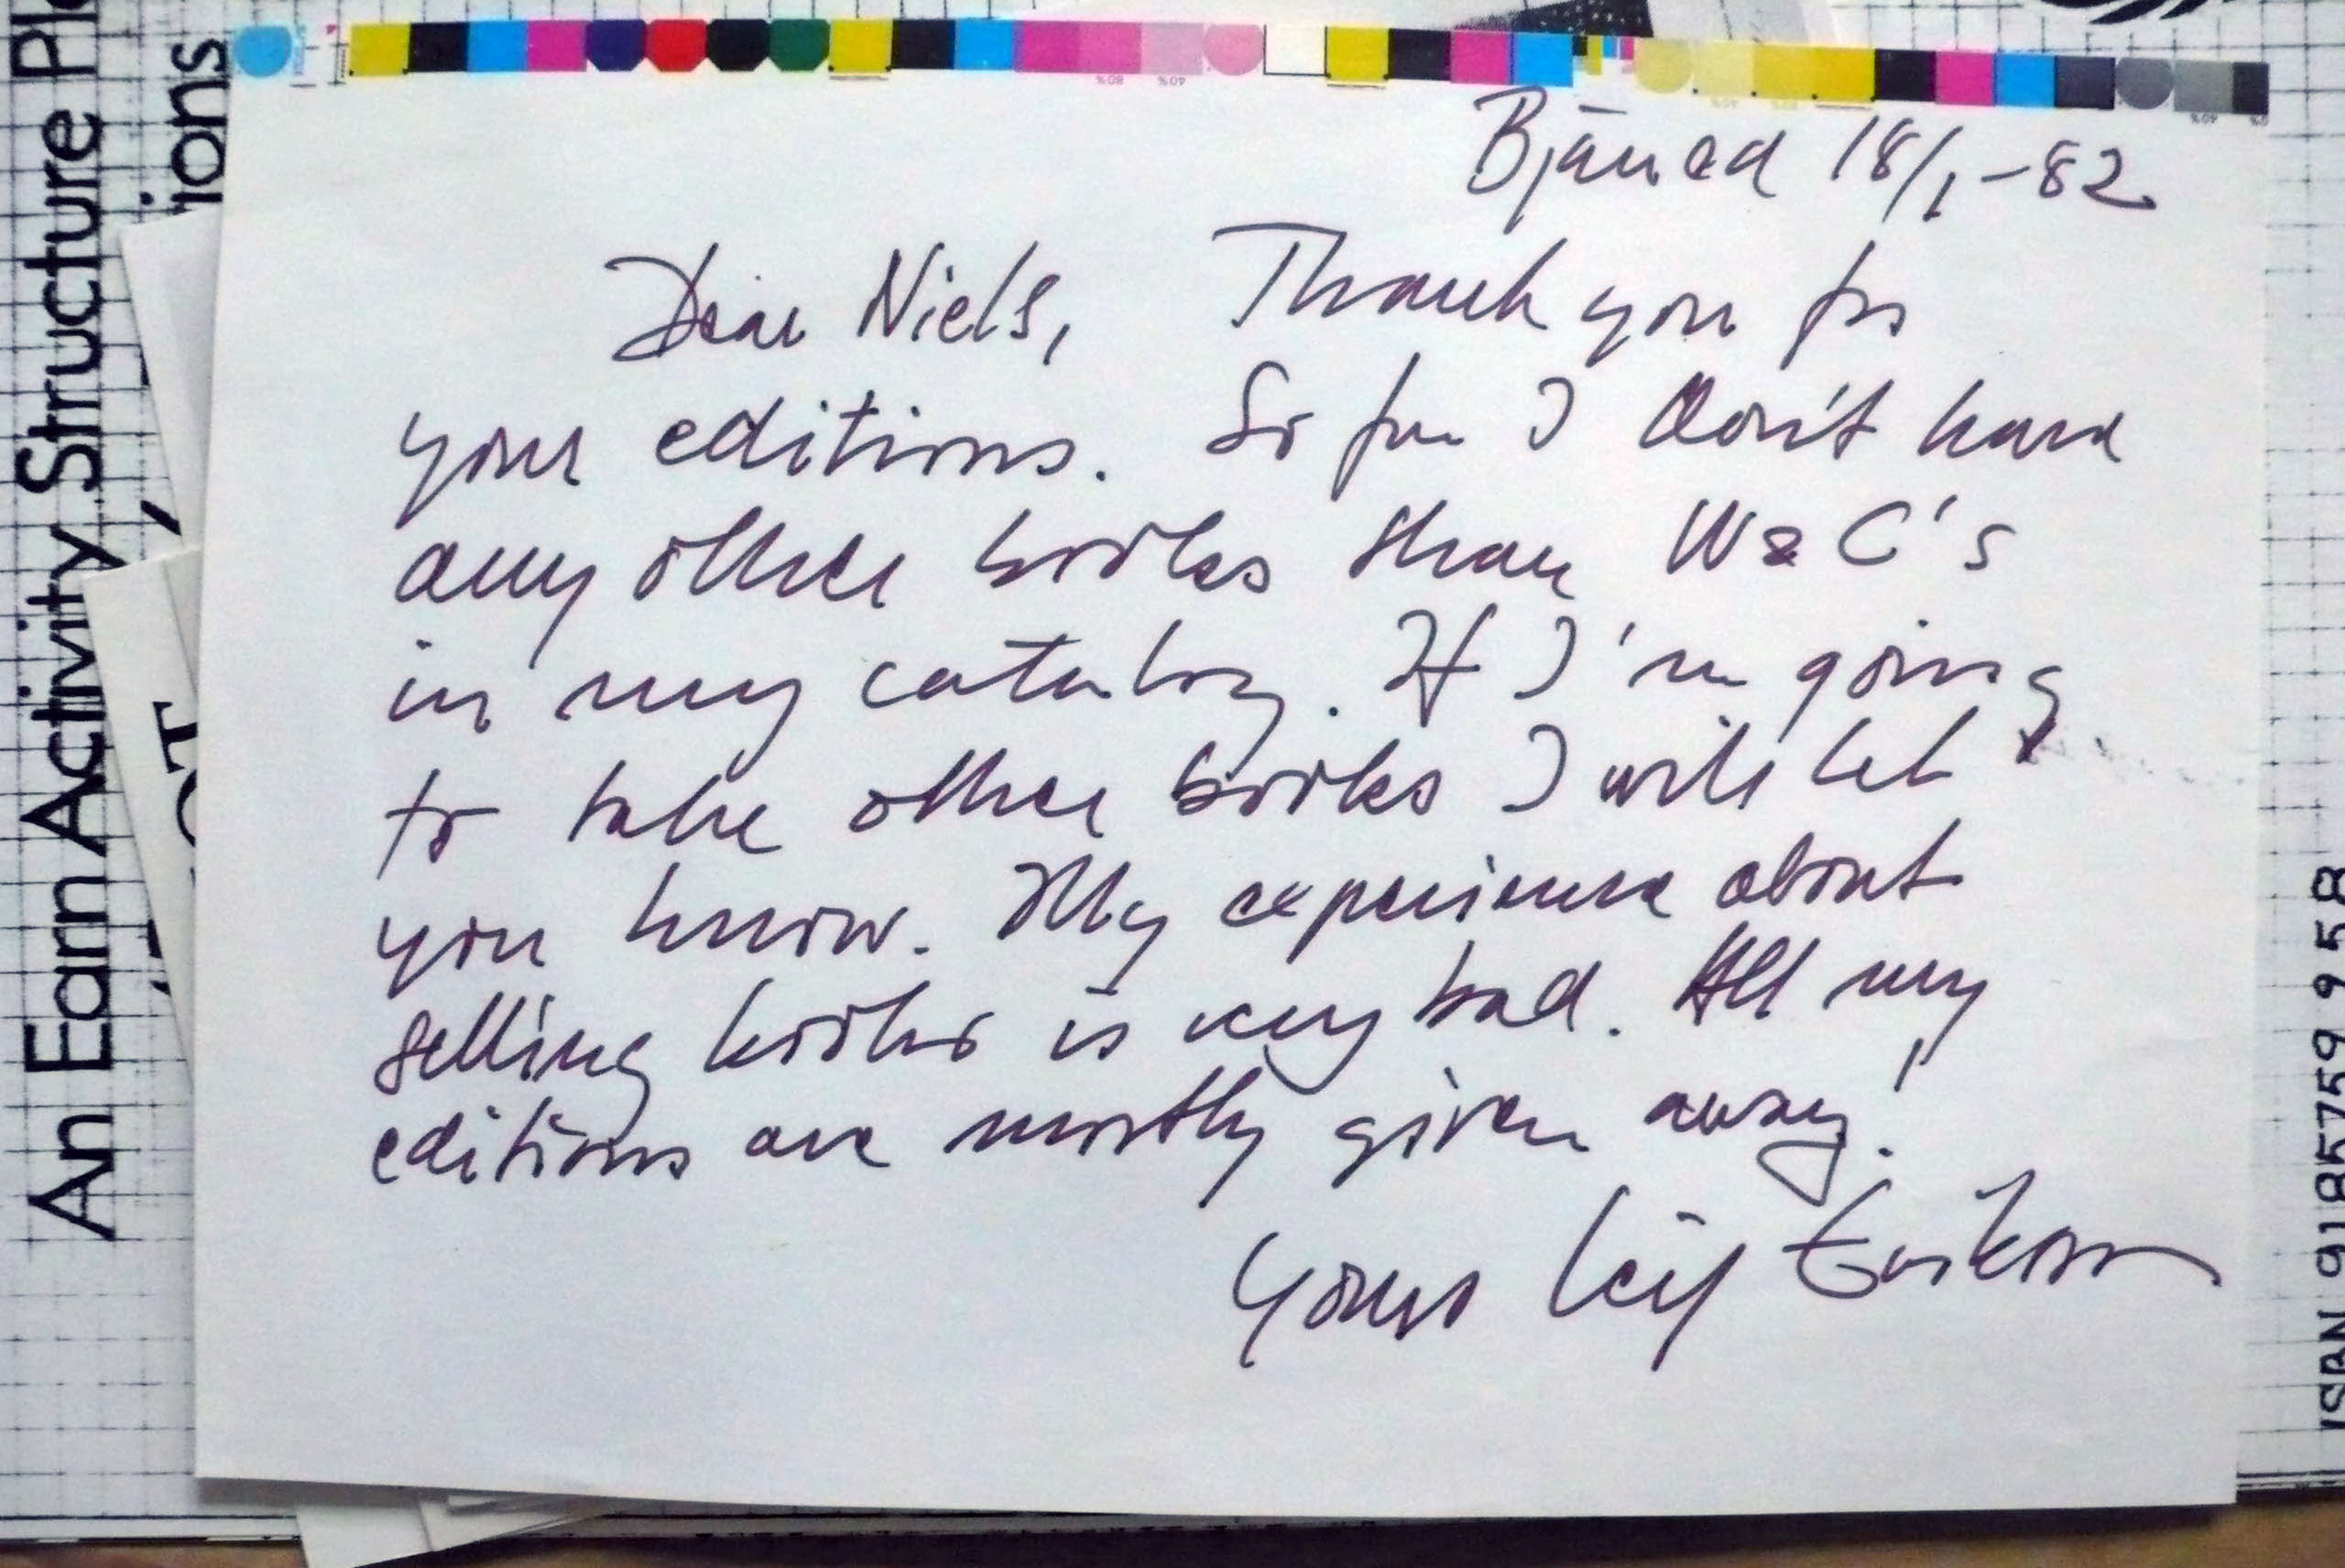 Bjäred 18/1-82
Dear Niels, Thank you for
your editions. So far I don't have
any other books than W&C's
in my catalog. If I'm going
to take other books I will let
you know. My experience about
selling books is very bad. All my
editions are mostly given away!
Yours Leif Eriksson
An Earn Activity Structure
ions
ISBN 91 85759 9 58
80%
40%
40%